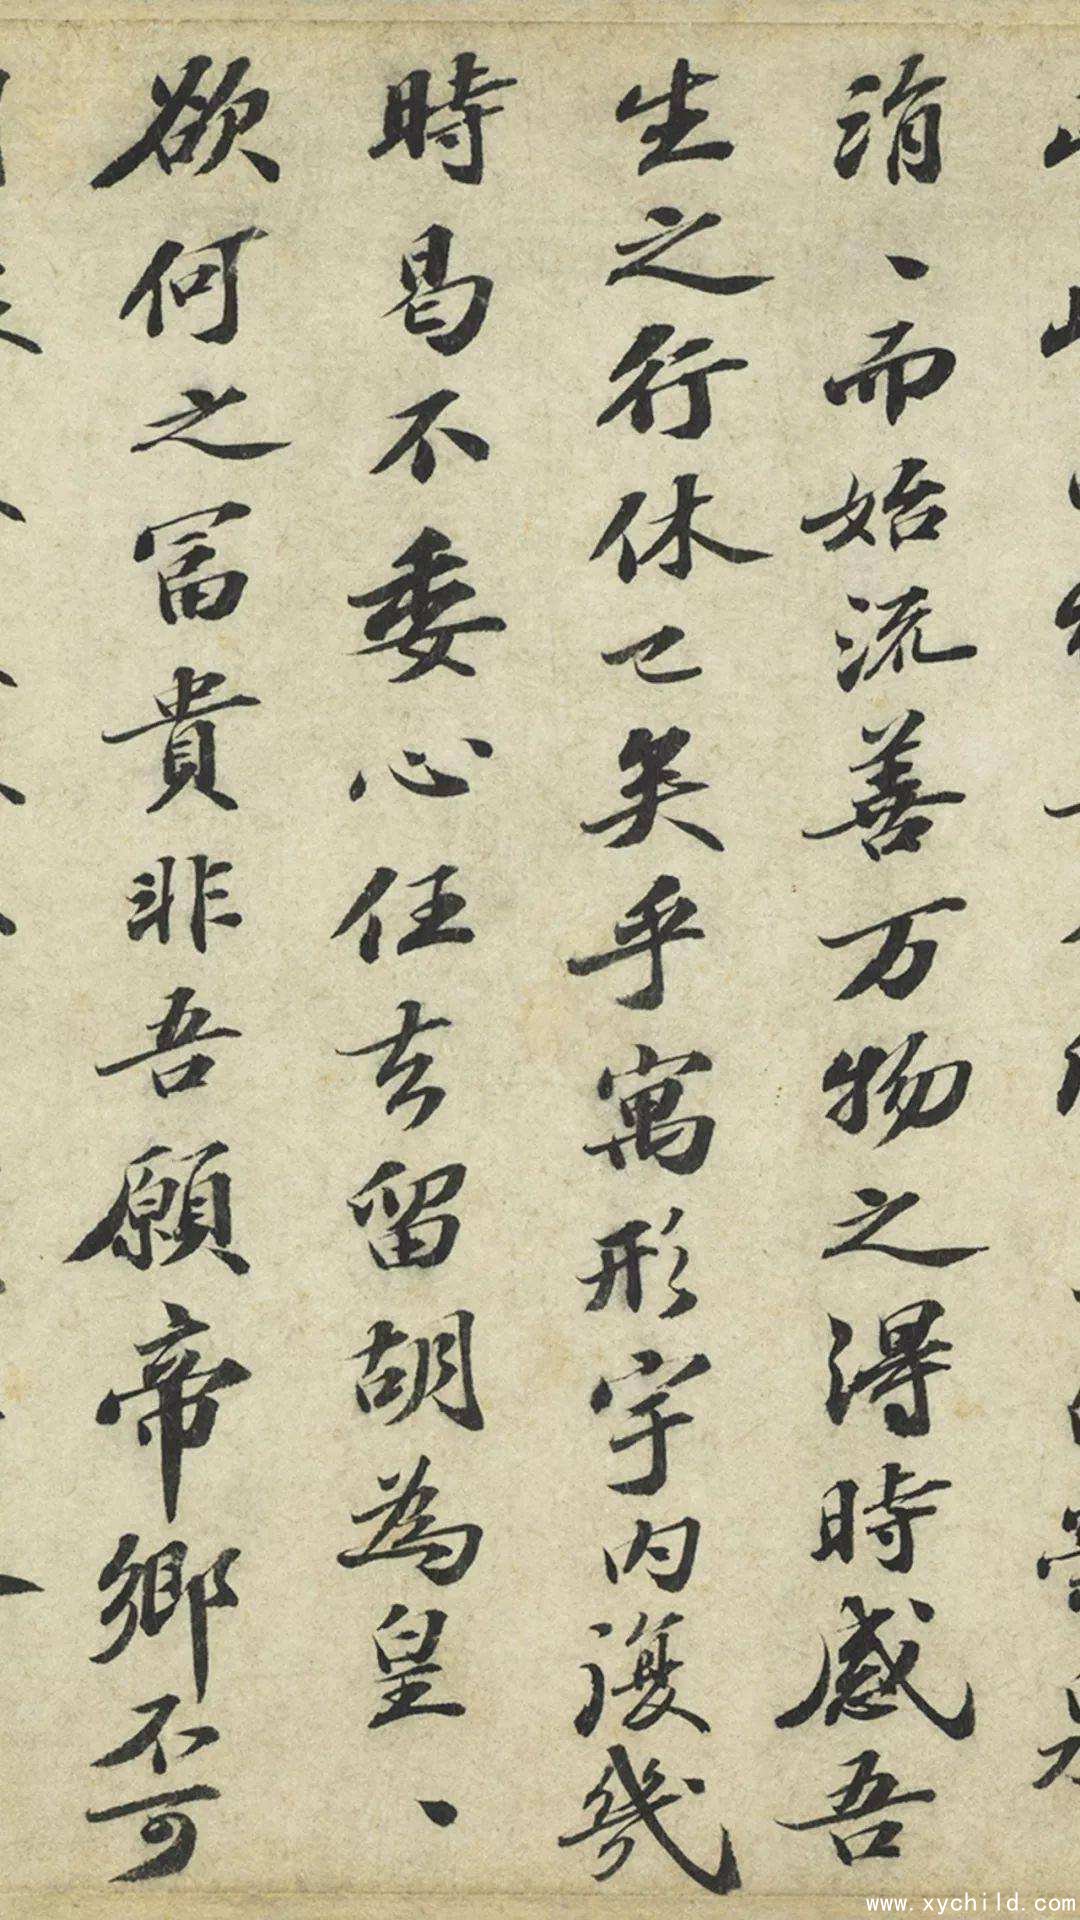 涓、而始流善万物之得時感吾
生之行休已矣乎寓形宇内復幾
時曷不委心任去留胡為皇、
欲何之冨貴非吾願帝鄉不可
www.xychild.com